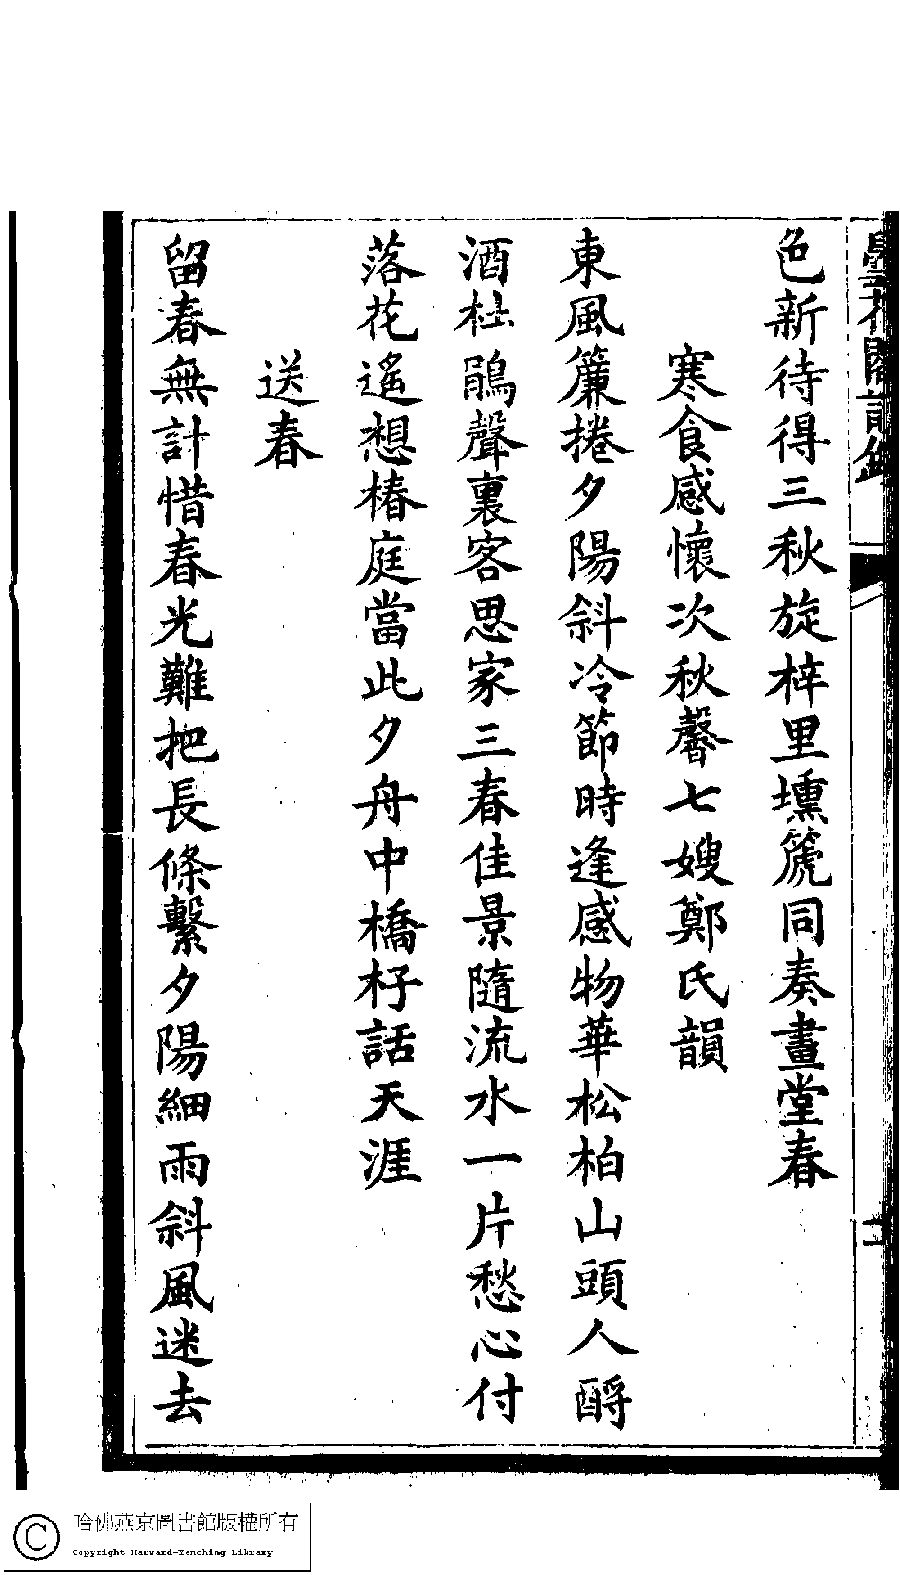 色新待得三秋旋梓里壎篪同奏畫堂春
寒食感懷次秋馨七嫂鄭氏韻
東風簾捲夕陽斜冷節時逢感物華松柏山頭人酹
酒杜鵑聲裏客思家三春佳景隨流水一片愁心付
落花遙想椿庭當此夕舟中橋杍話天涯
送春
留春無計惜春光難把長條繫夕陽細雨斜風迷去
哈佛燕京圖書館版權所有
Copyright Harvard-Yenching Library